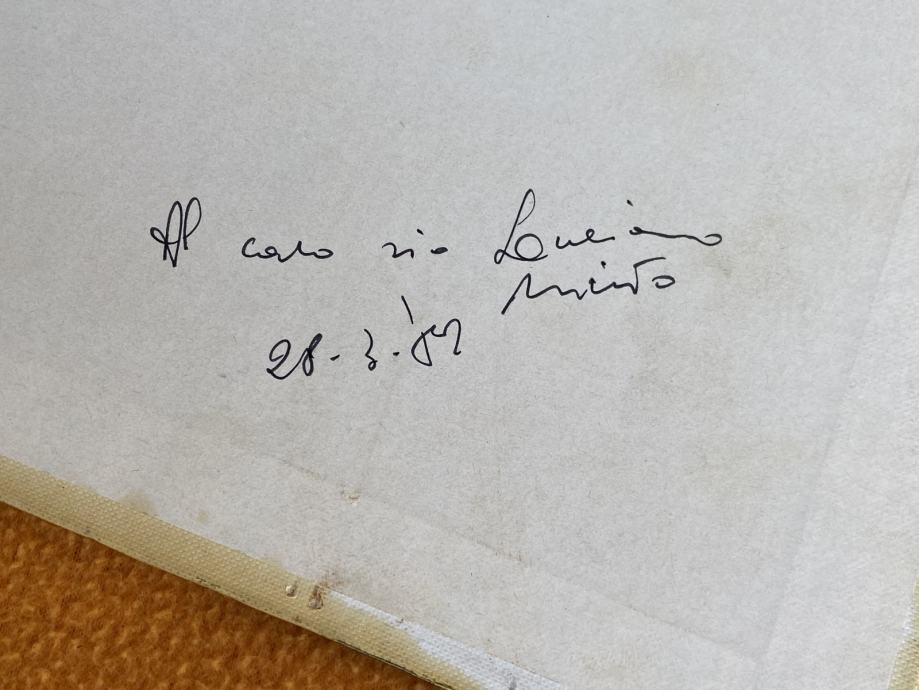 Al caro zio Luciano
28-3-'82